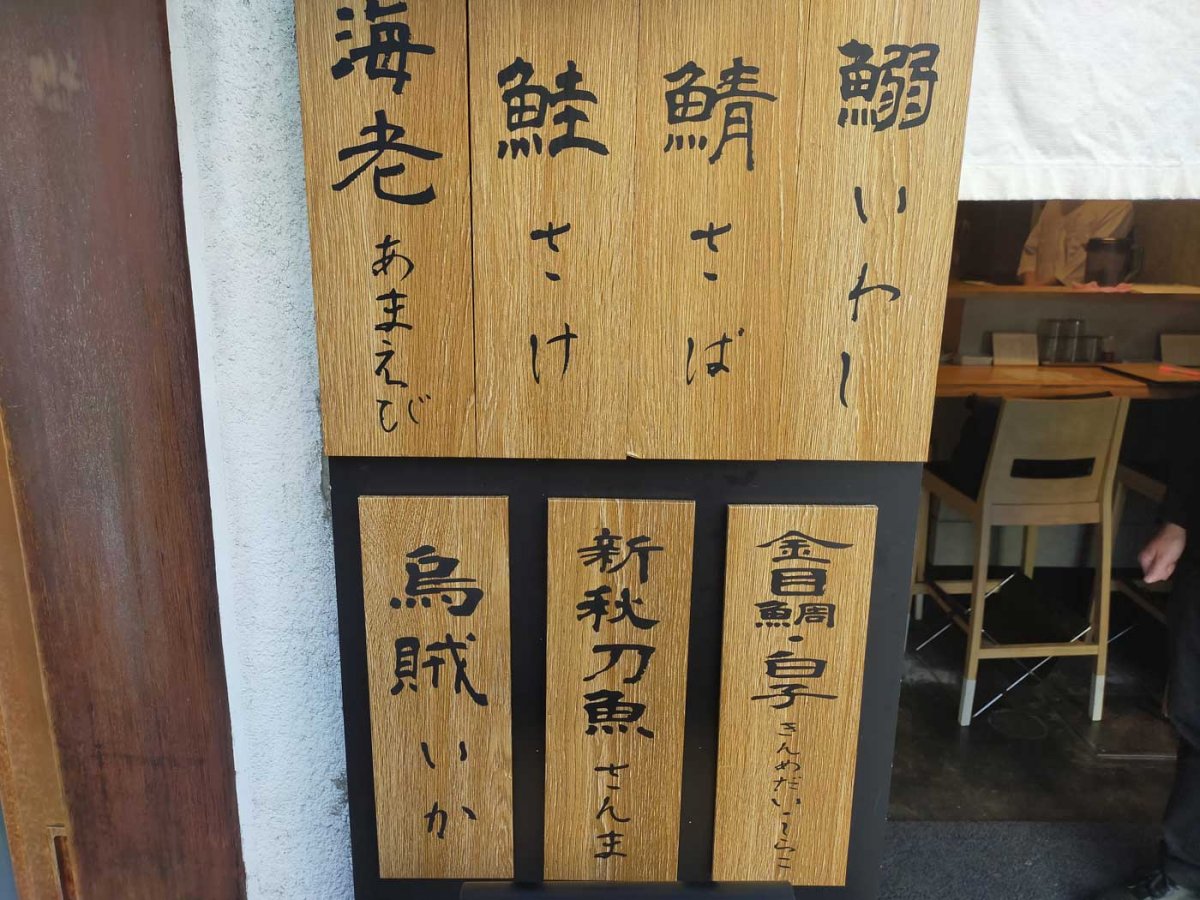 鰯 いわし
鯖 さば
鮭 さけ
海老 あまえび
金目鯛・白子 きんめだいしらこ
新秋刀魚 さんま
烏賊 いか